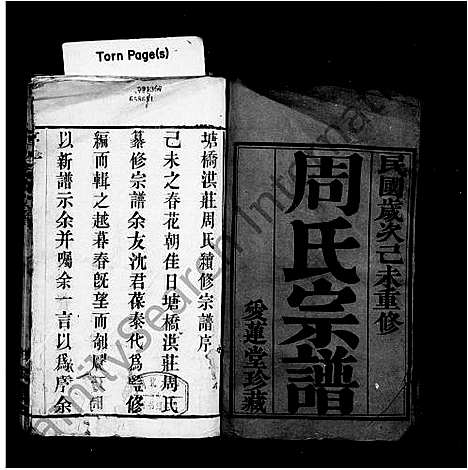 Torn Page(s)
民國歲次己未重修
周氏宗譜
愛蓮堂珍藏
塘橋淇莊周氏續修宗譜序
己未之春花朝佳日塘橋淇莊周氏
纂修宗譜余友沈君葆泰代爲監修
編而輯之越暮春旣望而剞劂
以新譜示余并囑余一言以爲序余